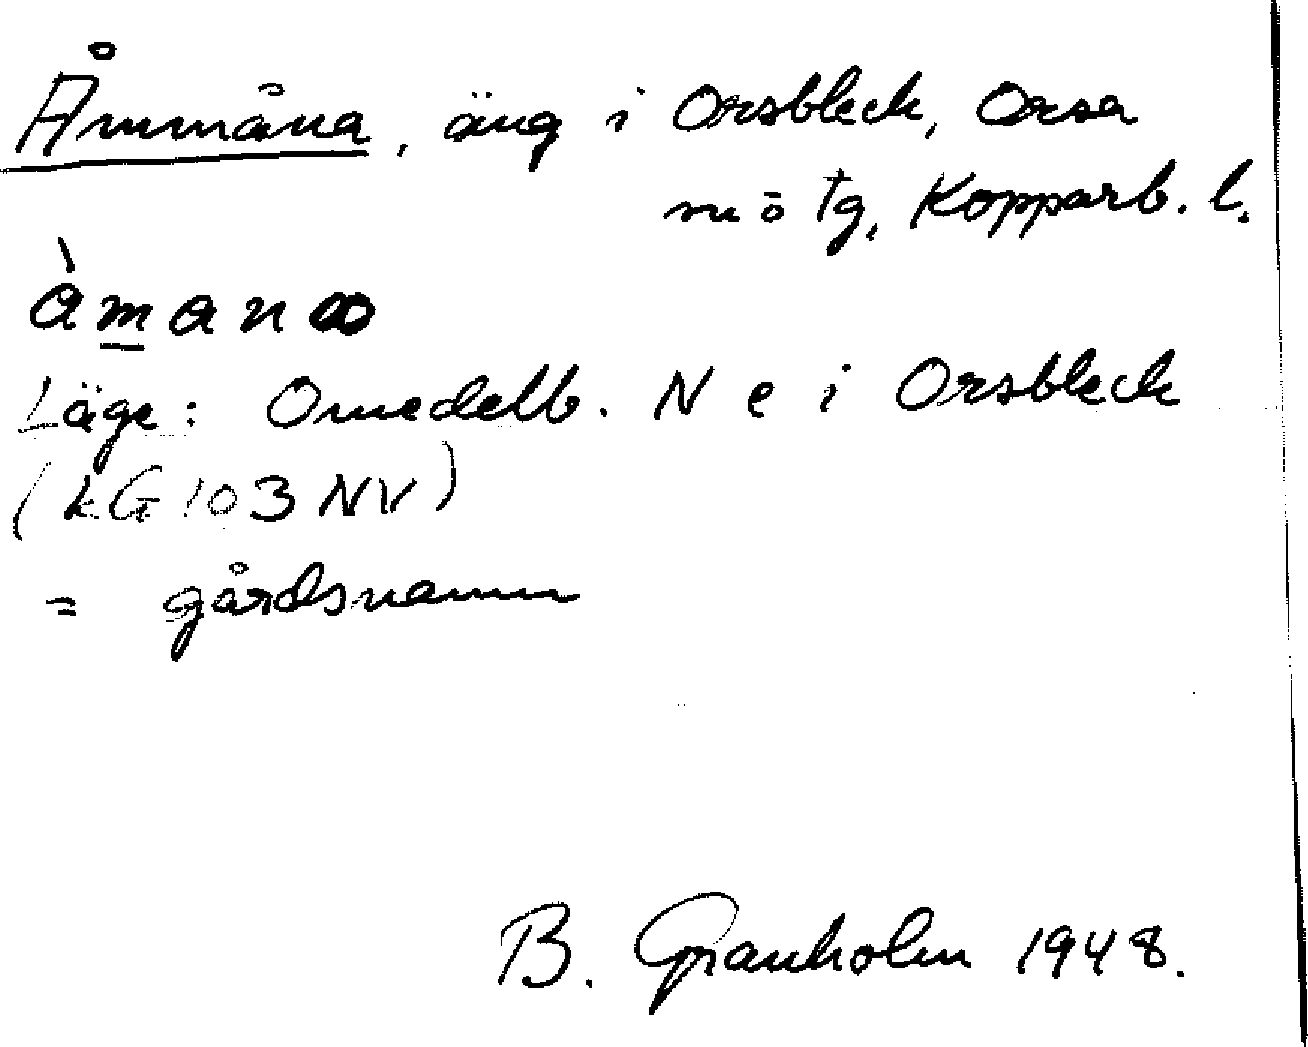 Åmmåna, äng i Orsbleck, Orsa
m ö tg, Kopparb. l.
àmana
Läge: Omedelb. N e i Orsbleck
(kG 103 NV)
= gårdsnamn
B. Granholm 1948.